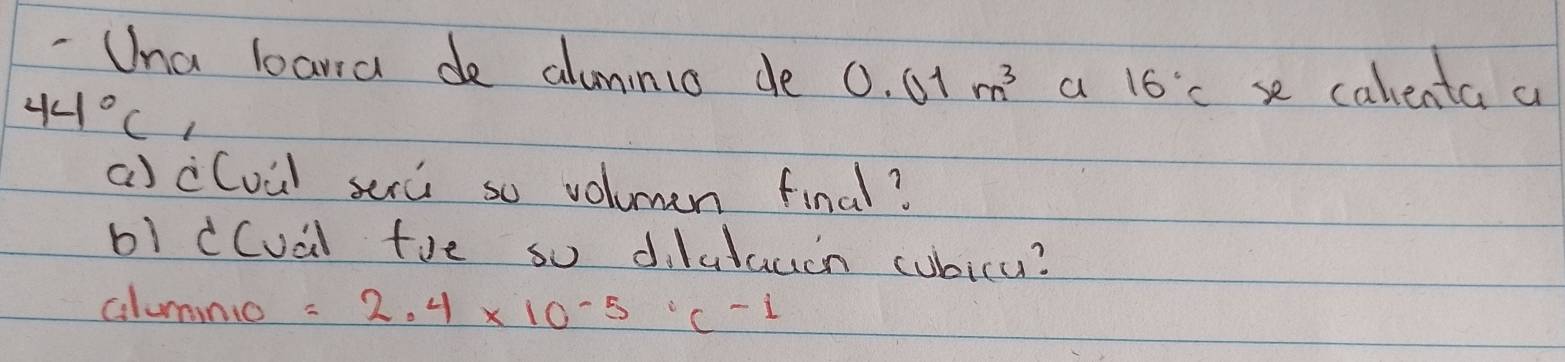 - Una barra de aluminio de 0.01 m³ a 16°c se calienta a
44°C,
a) ¿Cuál será su volumen final?
b) ¿Cuál fue su dilatación cubica?
aluminio = 2.4 x 10-5 °c -1